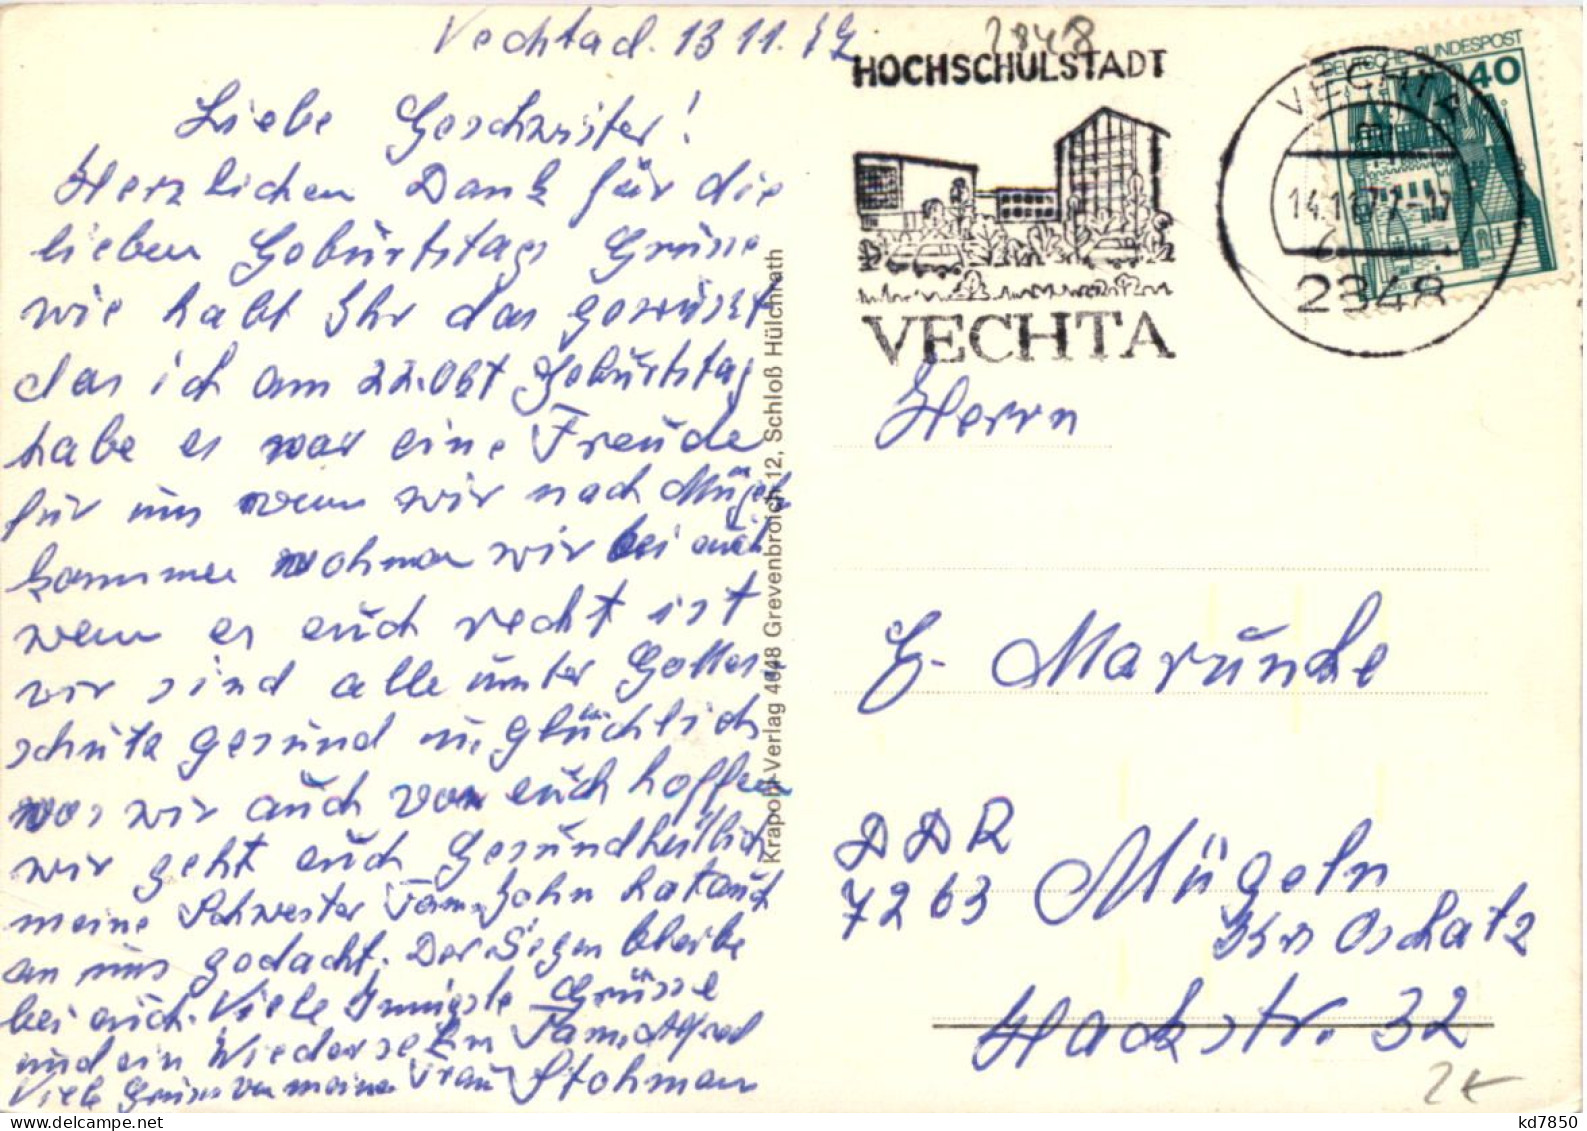 Vechta d. 13 11. 77
Liebe Geschwister!
Herzlichen Dank für die
lieben Geburtstags Grüsse
wie habt Ihr das gewüsst
das ich am 22. Okt Gebürtstag
habe es war eine Freude
für uns wenn wir nach Mügeln
kommen wohnen wir bei euch
wenn es euch recht ist
wir sind alle unter Gottes
schutz gesund u. glücklich
was wir auch von euch hoffen
wir geht euch Gesundheitlich
meine Schwester Fam. John hat auch
an uns gedacht. Der Segen bleibe
bei euch. Viele Innigste Grüsse
und ein Wiedersehn Fam. Alfred
Viele Grüsse von meiner Frau Stohman
Krapohl-Verlag 4048 Grevenbroich 12, Schloß Hülchrath
2848
HOCHSCHULSTADT
VECHTA
VECHTA
14.11.77-17
2848
DEUTSCHE BUNDESPOST
40
Herrn
G. Marunke
DDR
7263 Mügeln
Krs Oschatz
Hackstr. 32
kd7850
www.delcampe.net